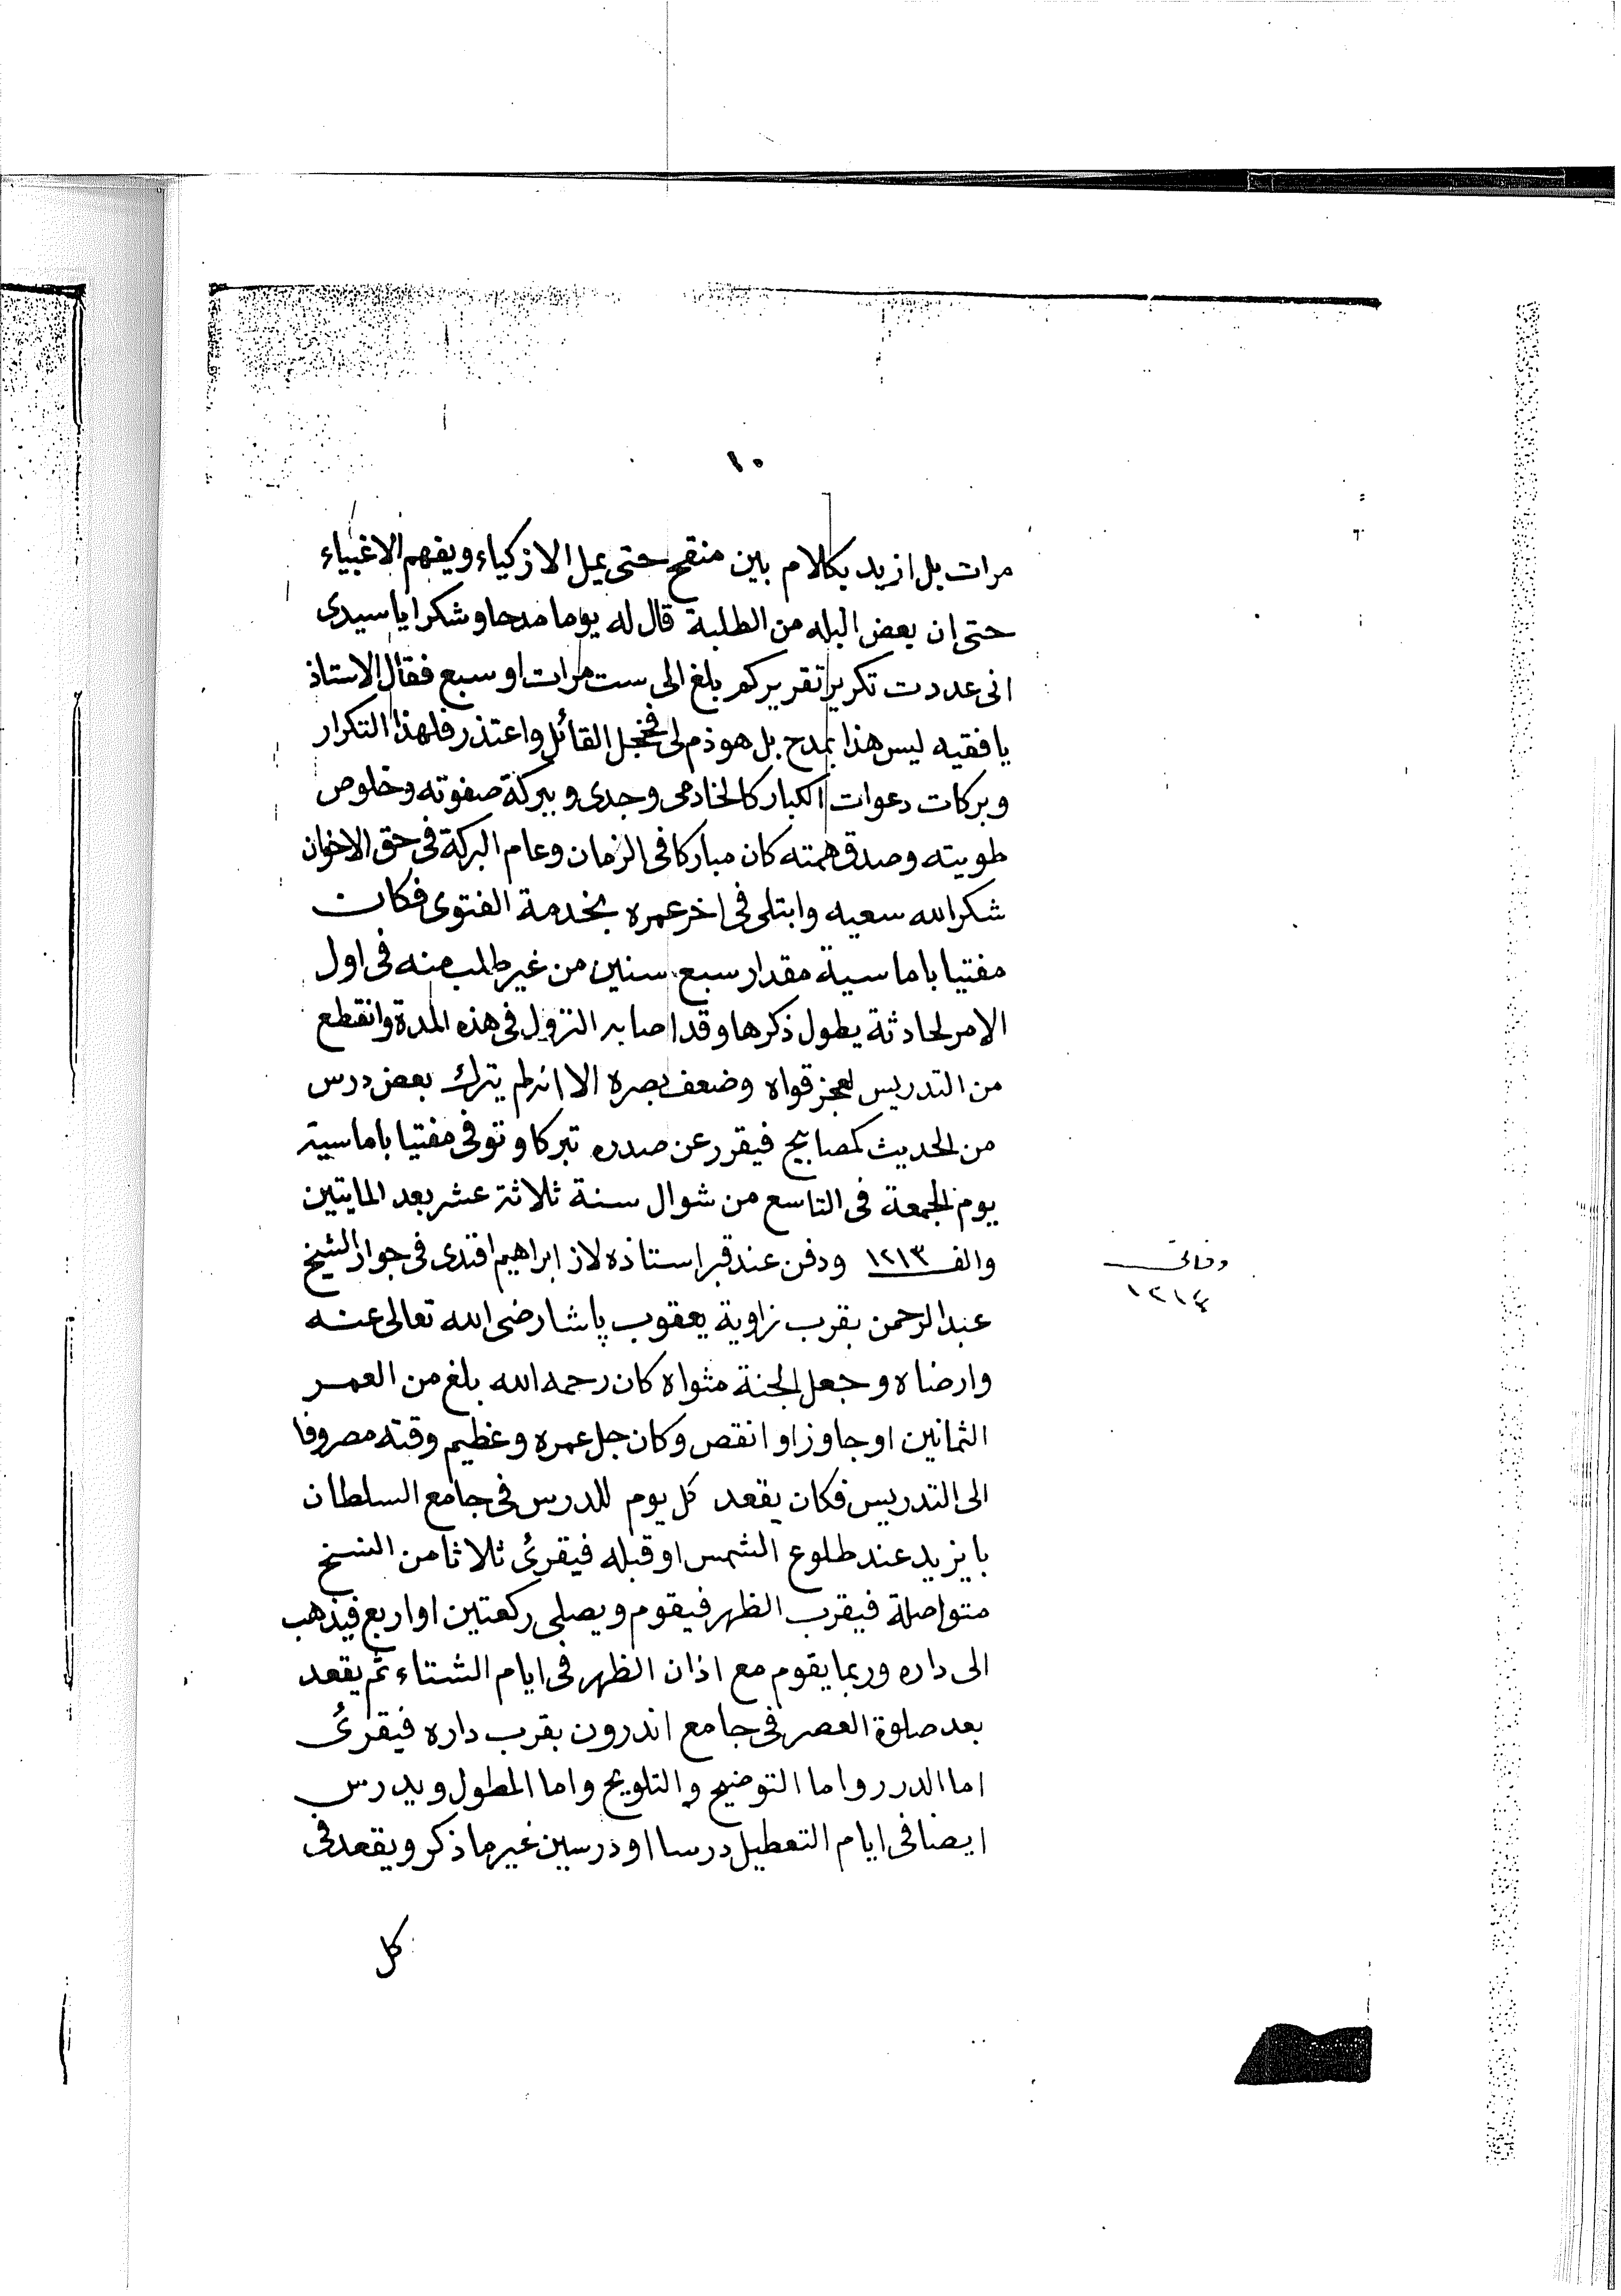 ١٠
مرات بل ازيد بكلام بين منقح حتى يمل الاذكياء ويفهم الاغبياء
حتى ان بعض البله من الطلبة قال له يوما مدحا وشكرا ياسيدى
انى عددت تكرير تقريركم بلغ الى ست مرات او سبع فقال الاستاذ
يا فقيه ليس هذا بمدح بل هو ذم لى فخجل القائل واعتذر فلهذا التكرار
وبركات دعوات الكبار كالخادمى وجدى وببركة صفوته وخلوص
طويته وصدق همته كان مباركا فى الزمان وعام البركة فى حق الاخوان
شكر الله سعيه وابتلى فى اخر عمره بخدمة الفتوى فكان
مفتيا باماسية مقدار سبع سنين من غير طلب منه فى اول
الامر لحادثة يطول ذكرها وقد اصابه النزول فى هذه المدة وانقطع
من التدريس لعجز قواه وضعف بصره الا انه لم يترك بعض درس
من الحديث كمصابيح فيقرر عن صدره تبركا وتوفى مفتيا باماسية
يوم الجمعة فى التاسع من شوال سنة ثلاثة عشر بعد المايتين
والف ١٢١٣ ودفن عند قبر استاذه لاز ابراهيم افندى فى جوار الشيخ
عبد الرحمن بقرب زاوية يعقوب پاشا رضى الله تعالى عنه
وارضاه وجعل الجنة مثواه كان رحمه الله بلغ من العمر
الثمانين او جاوز او انقص وكان جل عمره وعظيم وقته مصروفا
الى التدريس فكان يقعد كل يوم للدرس فى جامع السلطان
بايزيد عند طلوع الشمس او قبله فيقرئ ثلاثا من النسخ
متواصلة فيقرب الظهر فيقوم ويصلى ركعتين او اربع فيذهب
الى داره وربما يقوم مع اذان الظهر فى ايام الشتاء ثم يقعد
بعد صلوة العصر فى جامع اندرون بقرب داره فيقرئ
اما الدرر واما التوضيح والتلويح واما المطول ويدرس
ايضا فى ايام التعطيل درسا او درسين غير ما ذكر ويقعد فى
كل
وفاتى
١٢١٤